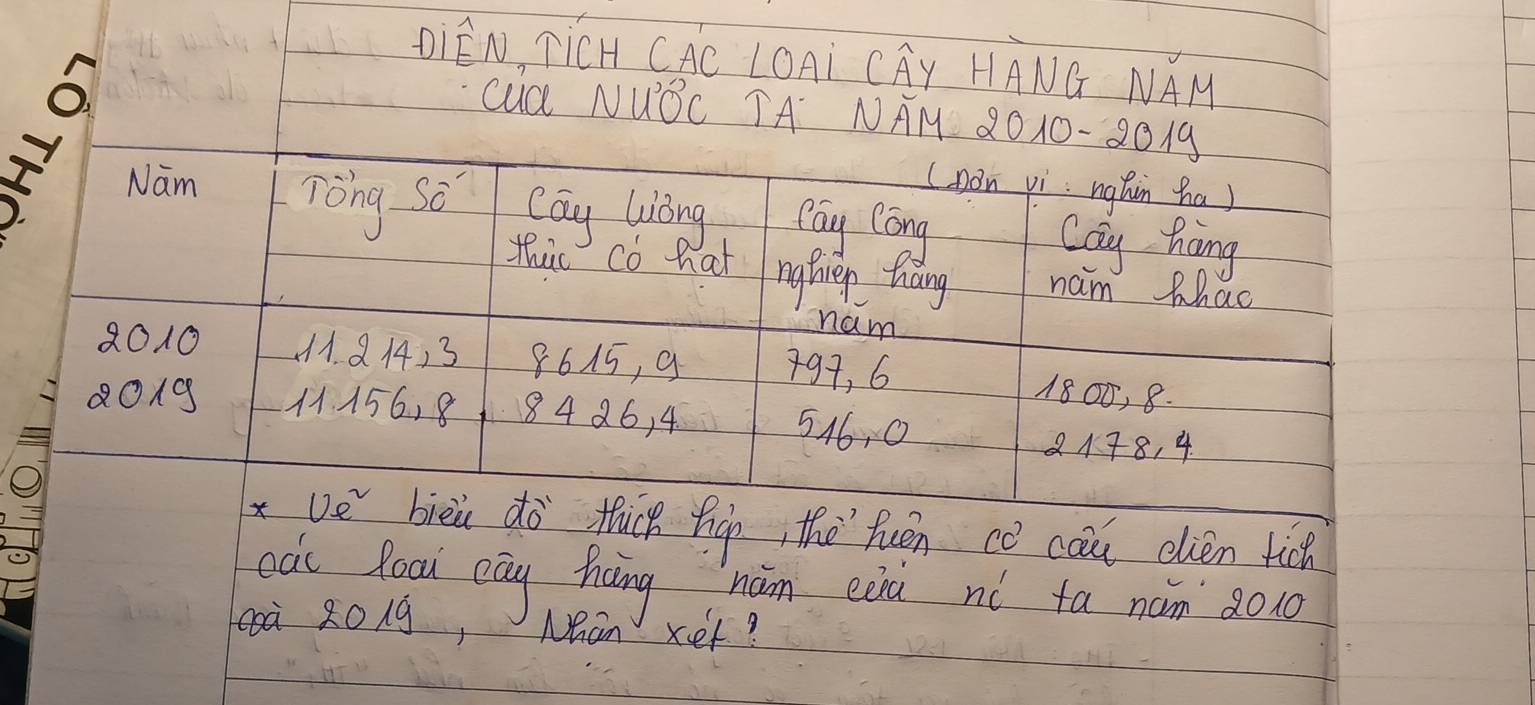 DIỆN TÍCH CÁC LOẠI CÂY HÀNG NĂM
CỦA NƯỚC TA NĂM 2010-2019
(Đơn vị: nghìn ha)
Năm Tổng Số Cây lương thực có hạt Cây công nghiệp hàng năm Cây hàng năm khác
2010 11.214,3 8615,9 797,6 1800,8.
2019 11156,8 8426,4 516,0 2178,4
* Vẽ biểu đồ thích hợp, thể hiện cơ cấu diện tích
các loại cây hàng năm của nc ta năm 2010
và 2019, Nhận xét?